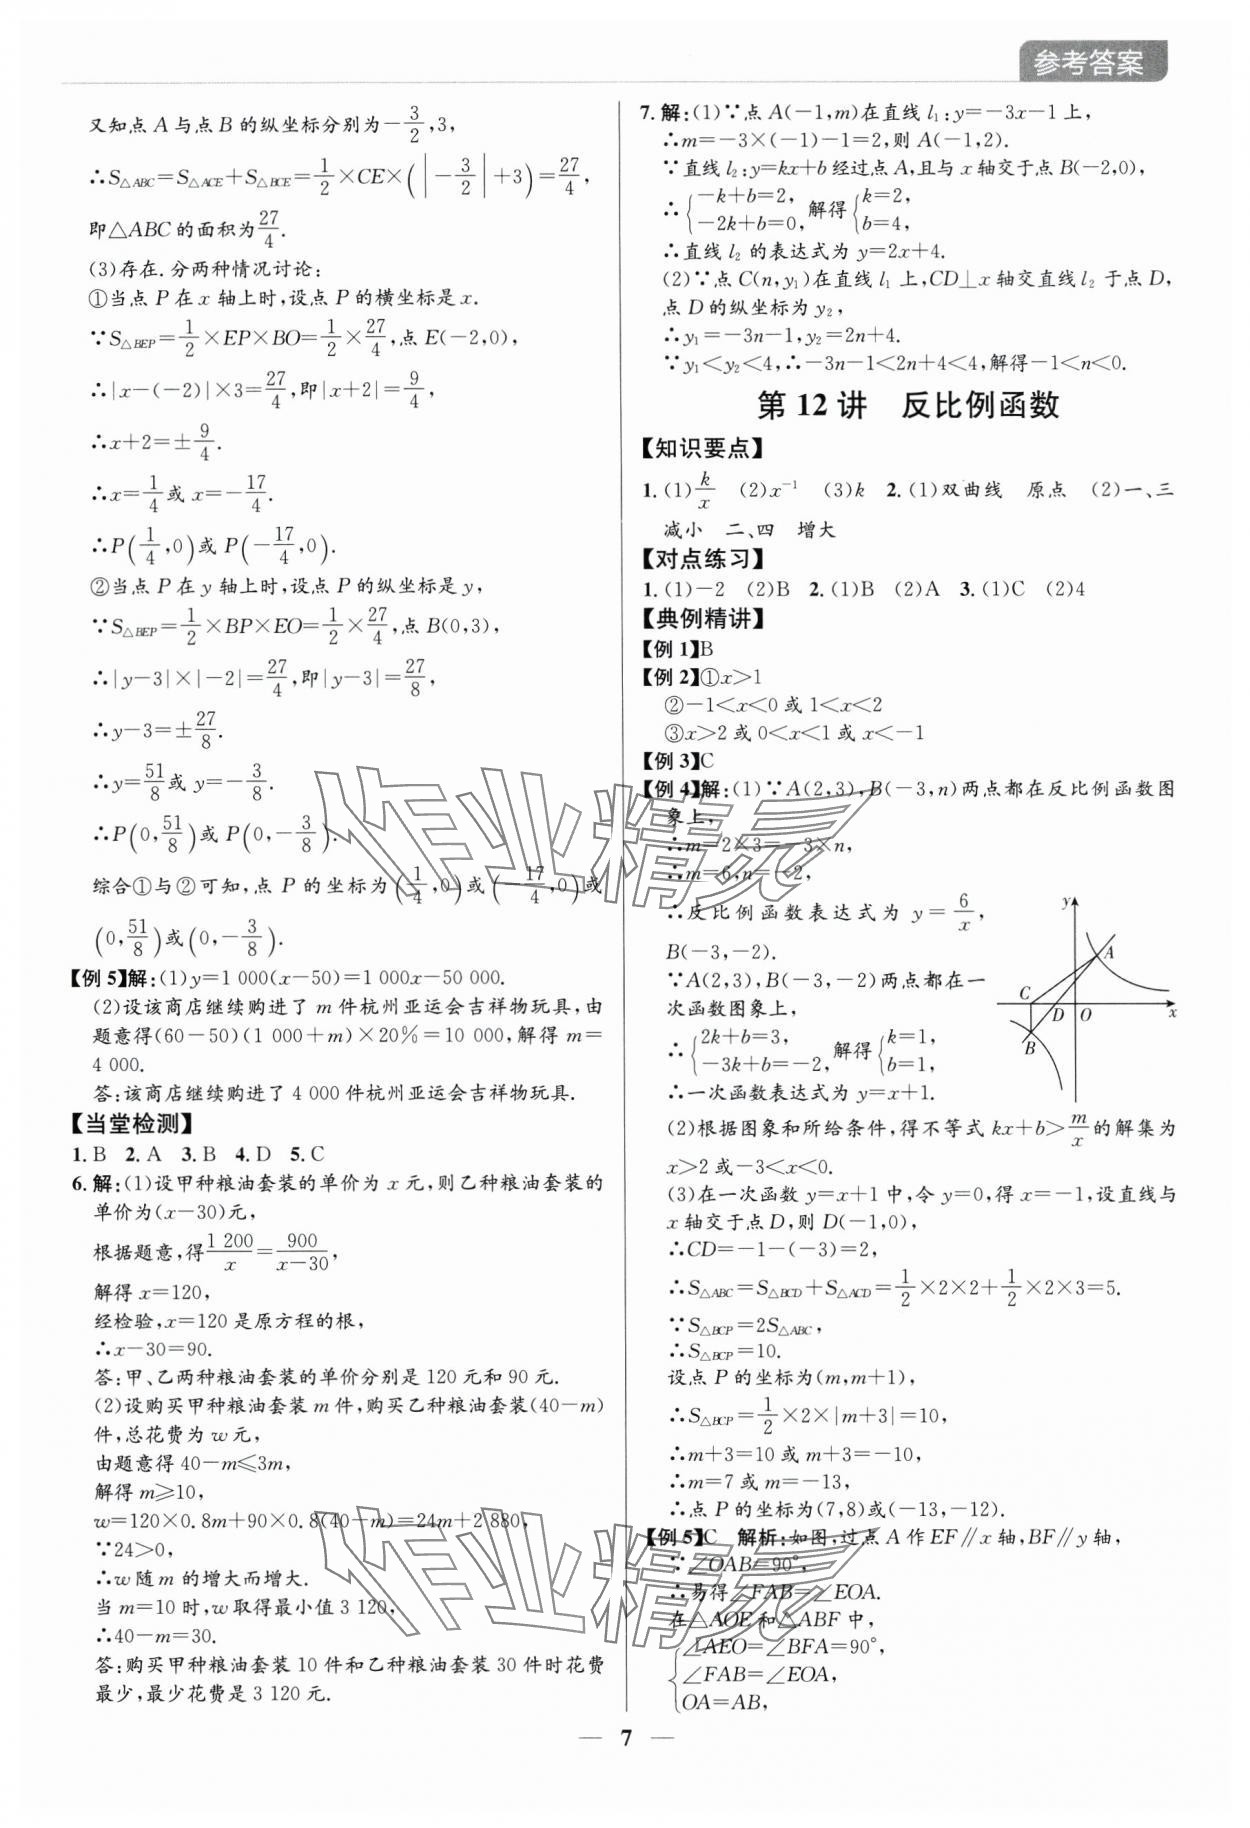 参考答案
又知点 A 与点 B 的纵坐标分别为-3/2,3,
∴S△ABC=S△ACE+S△BCE=1/2×CE×(|-3/2|+3)=27/4,
即△ABC的面积为27/4.
(3)存在.分两种情况讨论:
①当点 P 在 x 轴上时,设点 P 的横坐标是 x.
∵S△BEP=1/2×EP×BO=1/2×27/4,点 E(-2,0),
∴|x-(-2)|×3=27/4,即|x+2|=9/4,
∴x+2=±9/4.
∴x=1/4或 x=-17/4.
∴P(1/4,0)或 P(-17/4,0).
②当点 P 在 y 轴上时,设点 P 的纵坐标是 y,
∵S△BEP=1/2×BP×EO=1/2×27/4,点 B(0,3),
∴|y-3|×|-2|=27/4,即|y-3|=27/8,
∴y-3=±27/8.
∴y=51/8或 y=-3/8.
∴P(0,51/8)或 P(0,-3/8).
综合①与②可知,点 P 的坐标为(1/4,0)或(-17/4,0)或
(0,51/8)或(0,-3/8).
【例 5】解:(1)y=1 000(x-50)=1 000x-50 000.
(2)设该商店继续购进了 m 件杭州亚运会吉祥物玩具,由
题意得(60-50)(1 000+m)×20%=10 000,解得 m=
4 000.
答:该商店继续购进了 4 000 件杭州亚运会吉祥物玩具.
【当堂检测】
1. B 2. A 3. B 4. D 5. C
6. 解:(1)设甲种粮油套装的单价为 x 元,则乙种粮油套装的
单价为(x-30)元,
根据题意,得1 200/x=900/(x-30),
解得 x=120,
经检验,x=120 是原方程的根,
∴x-30=90.
答:甲、乙两种粮油套装的单价分别是 120 元和 90 元.
(2)设购买甲种粮油套装 m 件,购买乙种粮油套装(40-m)
件,总花费为 w 元,
由题意得 40-m≤3m,
解得 m≥10,
w=120×0.8m+90×0.8(40-m)=24m+2 880,
∵24>0,
∴w 随 m 的增大而增大.
当 m=10 时,w 取得最小值 3 120,
∴40-m=30.
答:购买甲种粮油套装 10 件和乙种粮油套装 30 件时花费
最少,最少花费是 3 120 元.
7. 解:(1)∵点 A(-1,m)在直线 l₁:y=-3x-1 上,
∴m=-3×(-1)-1=2,则 A(-1,2).
∵直线 l₂:y=kx+b 经过点 A,且与 x 轴交于点 B(-2,0),
∴{-k+b=2, -2k+b=0, 解得{k=2, b=4,
∴直线 l₂ 的表达式为 y=2x+4.
(2)∵点 C(n,y₁)在直线 l₁ 上,CD⊥x 轴交直线 l₂ 于点 D,
点 D 的纵坐标为 y₂,
∴y₁=-3n-1,y₂=2n+4.
∵y₁<y₂<4,∴-3n-1<2n+4<4,解得-1<n<0.
第 12 讲 反比例函数
【知识要点】
1. (1)k/x (2)x⁻¹ (3)k 2. (1)双曲线 原点 (2)一、三
减小 二、四 增大
【对点练习】
1. (1)-2 (2)B 2. (1)B (2)A 3. (1)C (2)4
【典例精讲】
【例 1】B
【例 2】①x>1
②-1<x<0 或 1<x<2
③x>2 或 0<x<1 或 x<-1
【例 3】C
【例 4】解:(1)∵A(2,3),B(-3,n)两点都在反比例函数图
象上,
∴m=2×3=-3×n,
∴m=6,n=-2,
∴反比例函数表达式为 y=6/x,
B(-3,-2).
∵A(2,3),B(-3,-2)两点都在一
次函数图象上,
∴{2k+b=3, -3k+b=-2, 解得{k=1, b=1,
∴一次函数表达式为 y=x+1.
y
A
C
D O x
B
(2)根据图象和所给条件,得不等式 kx+b>m/x的解集为
x>2 或-3<x<0.
(3)在一次函数 y=x+1 中,令 y=0,得 x=-1,设直线与
x 轴交于点 D,则 D(-1,0),
∴CD=-1-(-3)=2,
∴S△ABC=S△BCD+S△ACD=1/2×2×2+1/2×2×3=5.
∵S△BCP=2S△ABC,
∴S△BCP=10.
设点 P 的坐标为(m,m+1),
∴S△BCP=1/2×2×|m+3|=10,
∴m+3=10 或 m+3=-10,
∴m=7 或 m=-13,
∴点 P 的坐标为(7,8)或(-13,-12).
【例 5】C 解析:如图,过点 A 作 EF∥x 轴,BF∥y 轴,
∵∠OAB=90°,
∴易得∠FAB=∠EOA.
在△AOE 和△ABF 中,
{∠AEO=∠BFA=90°,
∠FAB=∠EOA,
OA=AB,
作业精灵
作业精灵
— 7 —